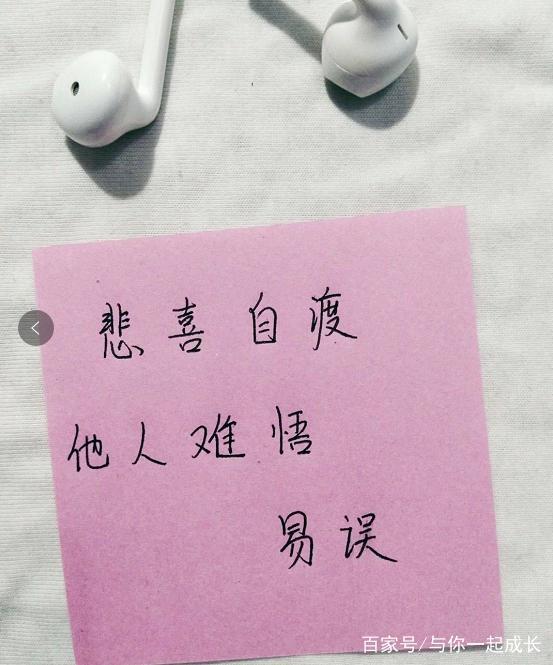 悲喜自渡
他人难悟
易误
百家号/与你一起成长